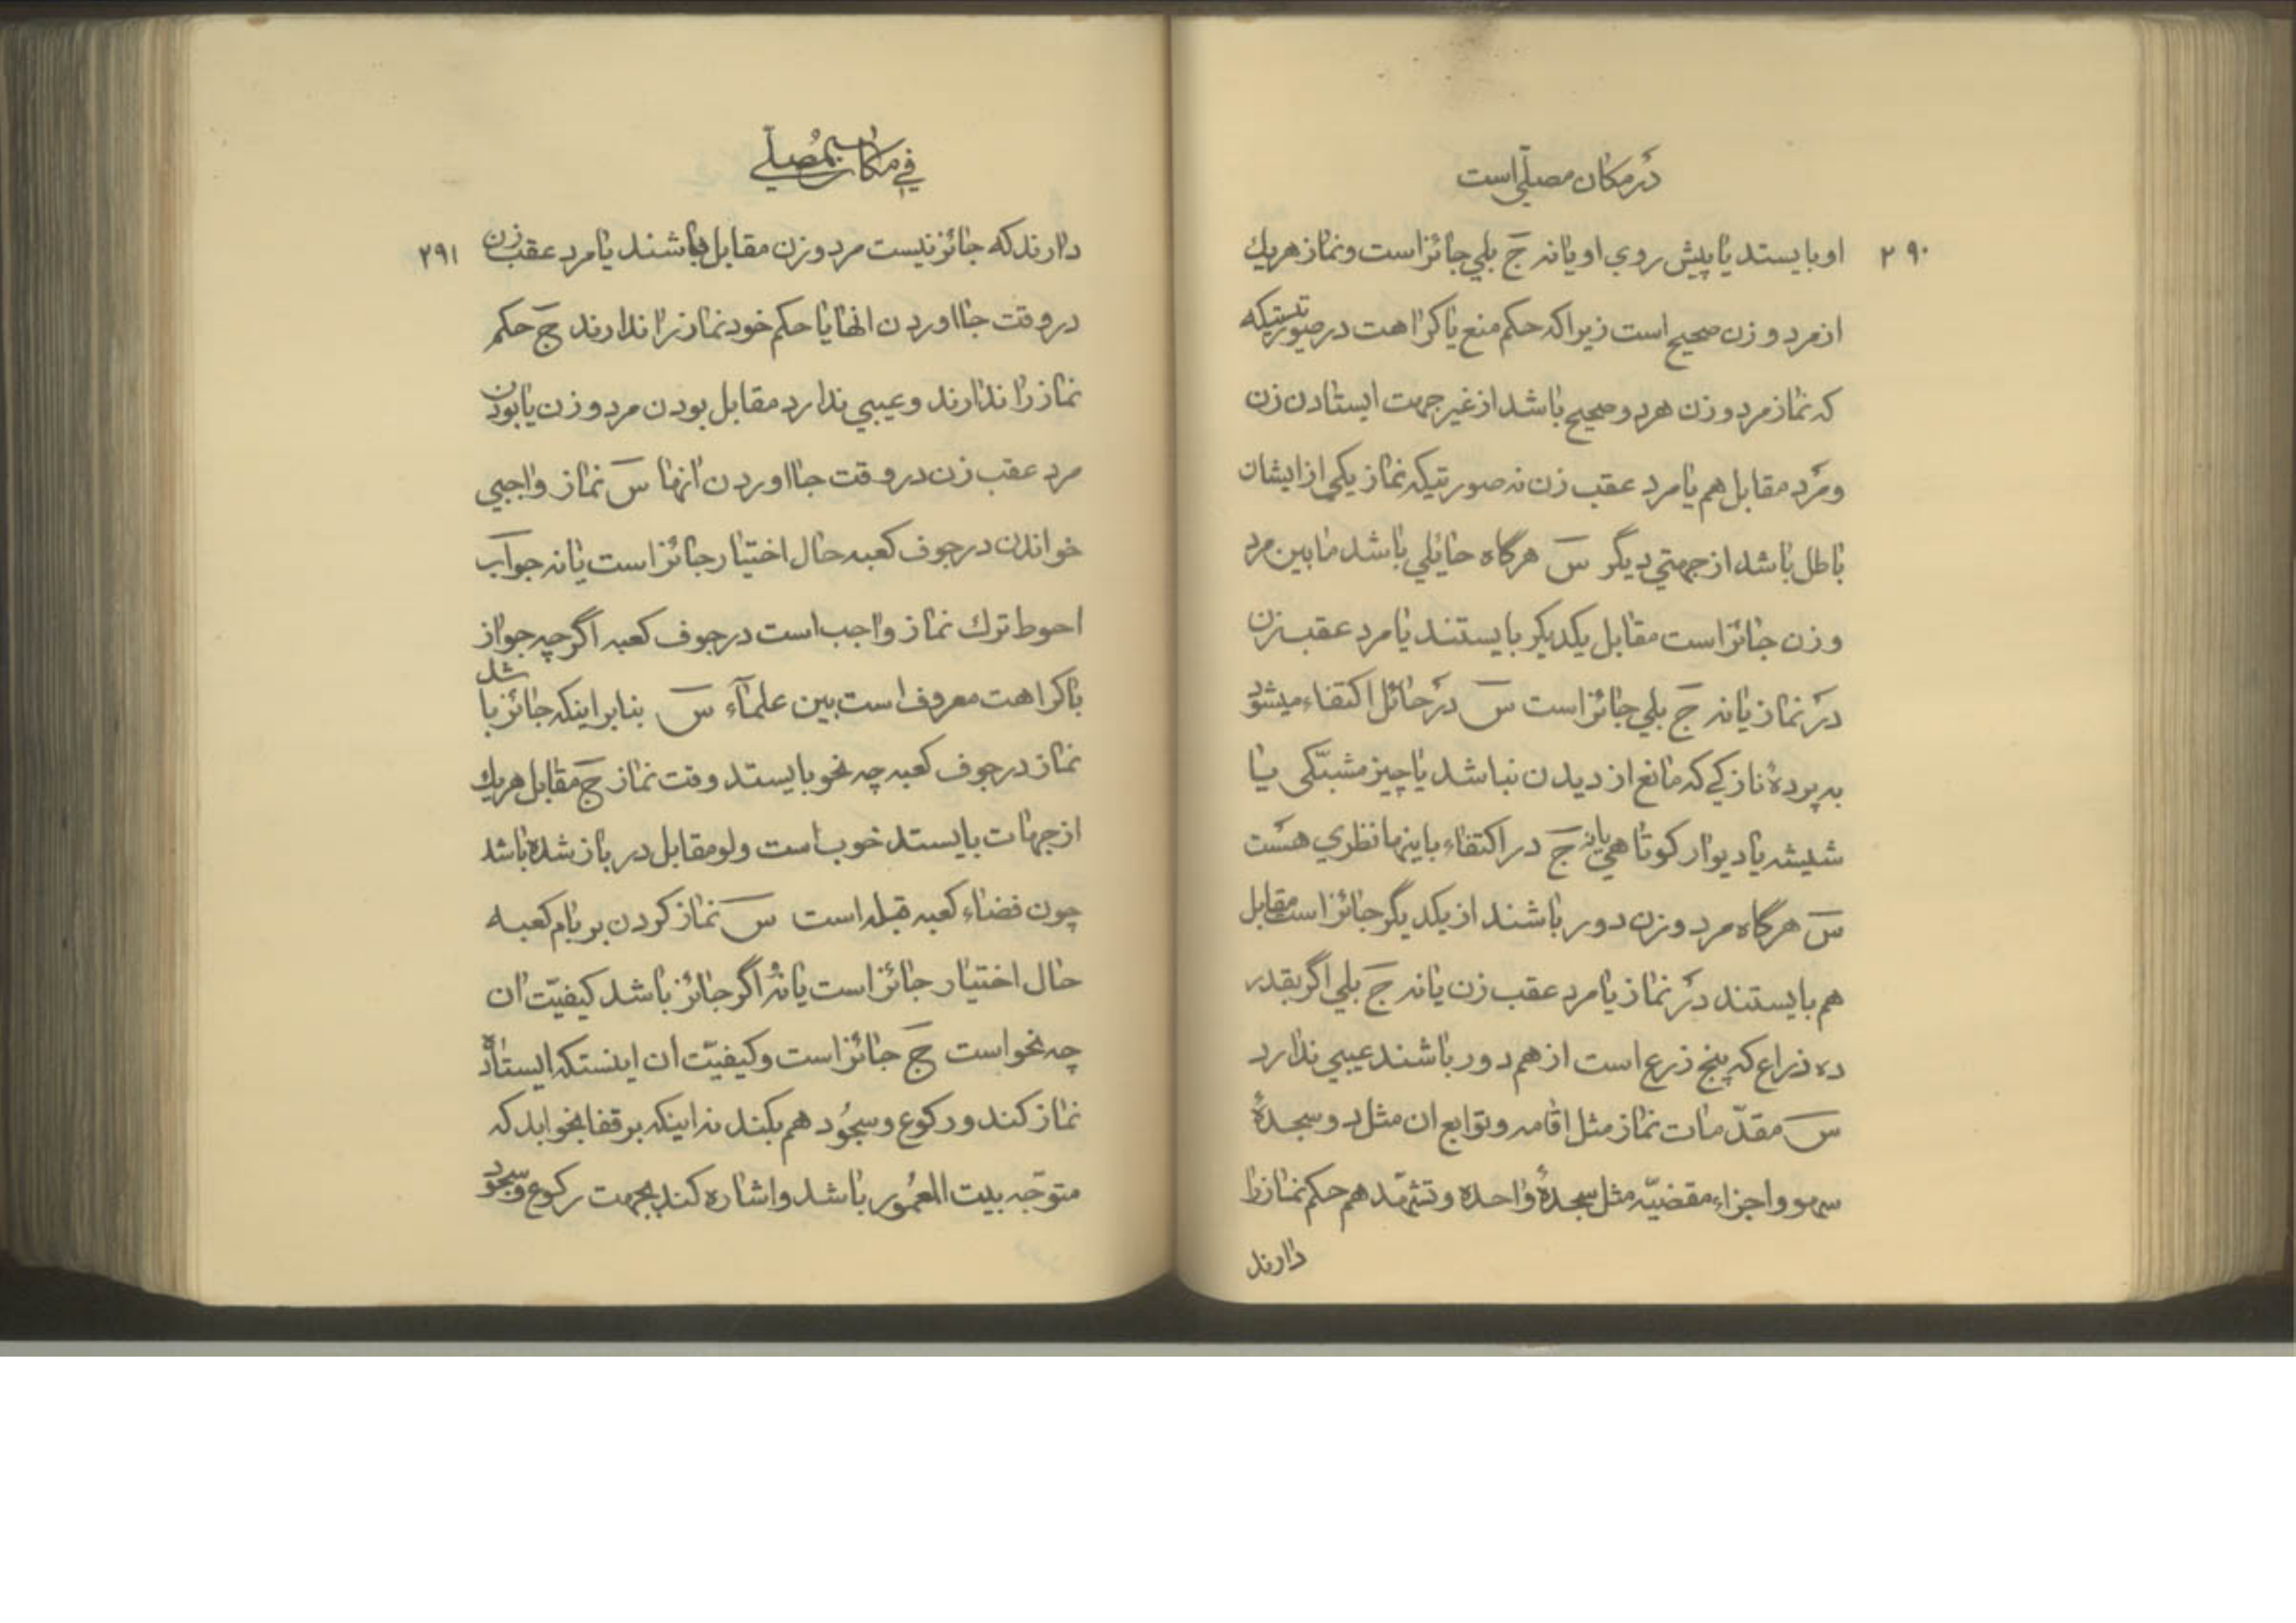 در مکان مصلّی است
۲۹۰
او بایستد یا پیش روی او یا نه جَ بلی جائز است و نماز هریك
از مرد و زن صحیح است زیرا که حکم منع یا کراهت در صورتیکه
که نماز مرد و زن هر دو صحیح باشد از غیر جهت ایستادن زن
و مرد مقابل هم یا مرد عقب زن نه صورتیکه نماز یکی از ایشان
باطل باشد از جهتی دیگر سَ هرگاه حائلی باشد ما بین مرد
و زن جائز است مقابل یکدیکر بایستند یا مرد عقب زن
در نماز یا نه جَ بلی جائز است سَ در حائل اکتفاء میشود
به پردهٔ نازکی که مانع از دیدن نباشد یا چیز مشبّکی یا
شیشه یا دیوار کوتاهی یا نه جَ در اکتفاء باینها نظری هست
سَ هرگاه مرد و زن دور باشند از یکدیگر جائز است مقابل
هم بایستند در نماز یا مرد عقب زن یا نه جَ بلی اگر بقدر
ده ذراع که پنج ذرع است از هم دور باشند عیبی ندارد
سَ مقدّمات نماز مثل اقامه و توابع ان مثل دو سجدهٔ
سهو و اجزاء مقضیّه مثل سجدهٔ واحده و تشهّد هم حکم نماز را
دارند
في مكان المصلّي
۲۹۱
دارند که جائز نیست مرد و زن مقابل باشند یا مرد عقب زن
در وقت جا اوردن انها یا حکم خود نماز را ندارند جَ حکم
نماز را ندارند و عیبی ندارد مقابل بودن مرد و زن یا بودن
مرد عقب زن در وقت جا اوردن انها سَ نماز واجبی
خواندن در جوف کعبه حال اختیار جائز است یا نه جوآب
احوط ترك نماز واجب است در جوف کعبه اگر چه جواز
با کراهت معروف است بین علمآء سَ بنابر اینکه جائز باشد
نماز در جوف کعبه چه نحو بایستد وقت نماز جَ مقابل هریك
از جهات بایستد خوب است ولو مقابل در باز شده باشد
چون فضاء کعبه قبله است سَ نماز کردن بر بام کعبه
حال اختیار جائز است یا نه و اگر جائز باشد کیفیّت ان
چه نحو است جَ جائز است و کیفیّت ان اینستکه ایستاده
نماز کند و رکوع و سجُود هم بکند نه اینکه بر قفا بخوابد که
متوجّه بیت المعمُور باشد و اشاره کند بجهت رکوع و سجود